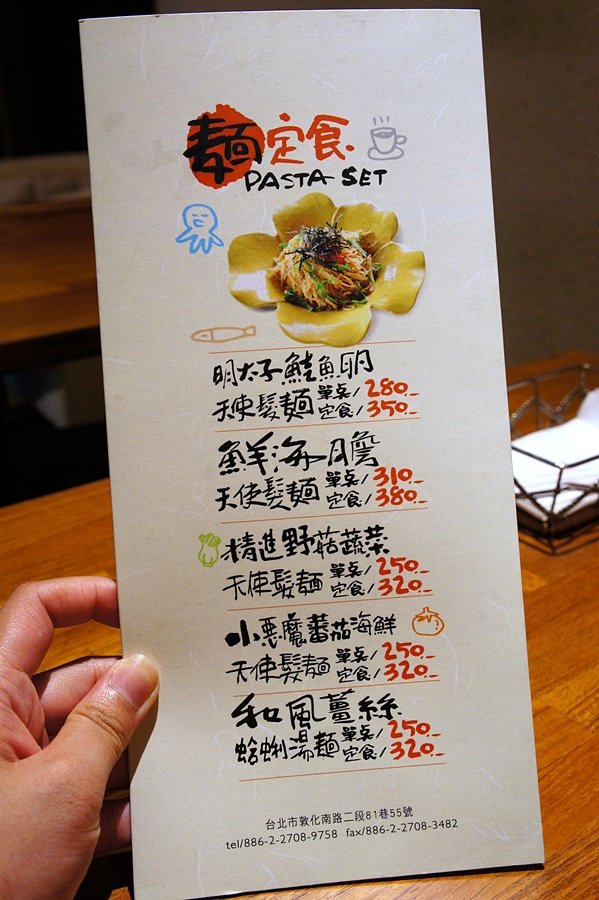 麵定食
PASTA SET
明太子鮭魚卵
天使髮麵 單点/280.-
定食/350.-
鮮海膽
天使髮麵 單点/310.-
定食/380.-
精進野菇蔬菜
天使髮麵 單点/250.-
定食/320.-
小惡魔蕃茄海鮮
天使髮麵 單点/250.-
定食/320.-
和風薑絲
蛤蜊湯麵 單点/250.-
定食/320.-
台北市敦化南路二段81巷55號
tel/886-2-2708-9758 fax/886-2-2708-3482